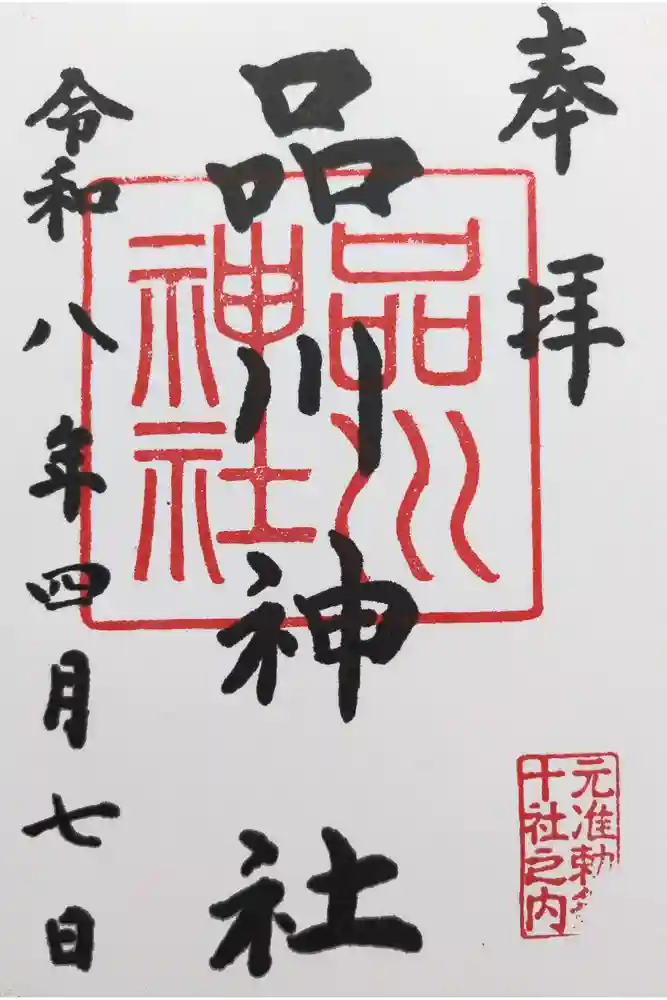 奉拝
品川神社
品川
神社
令和八年四月七日
元准勅
十社之内